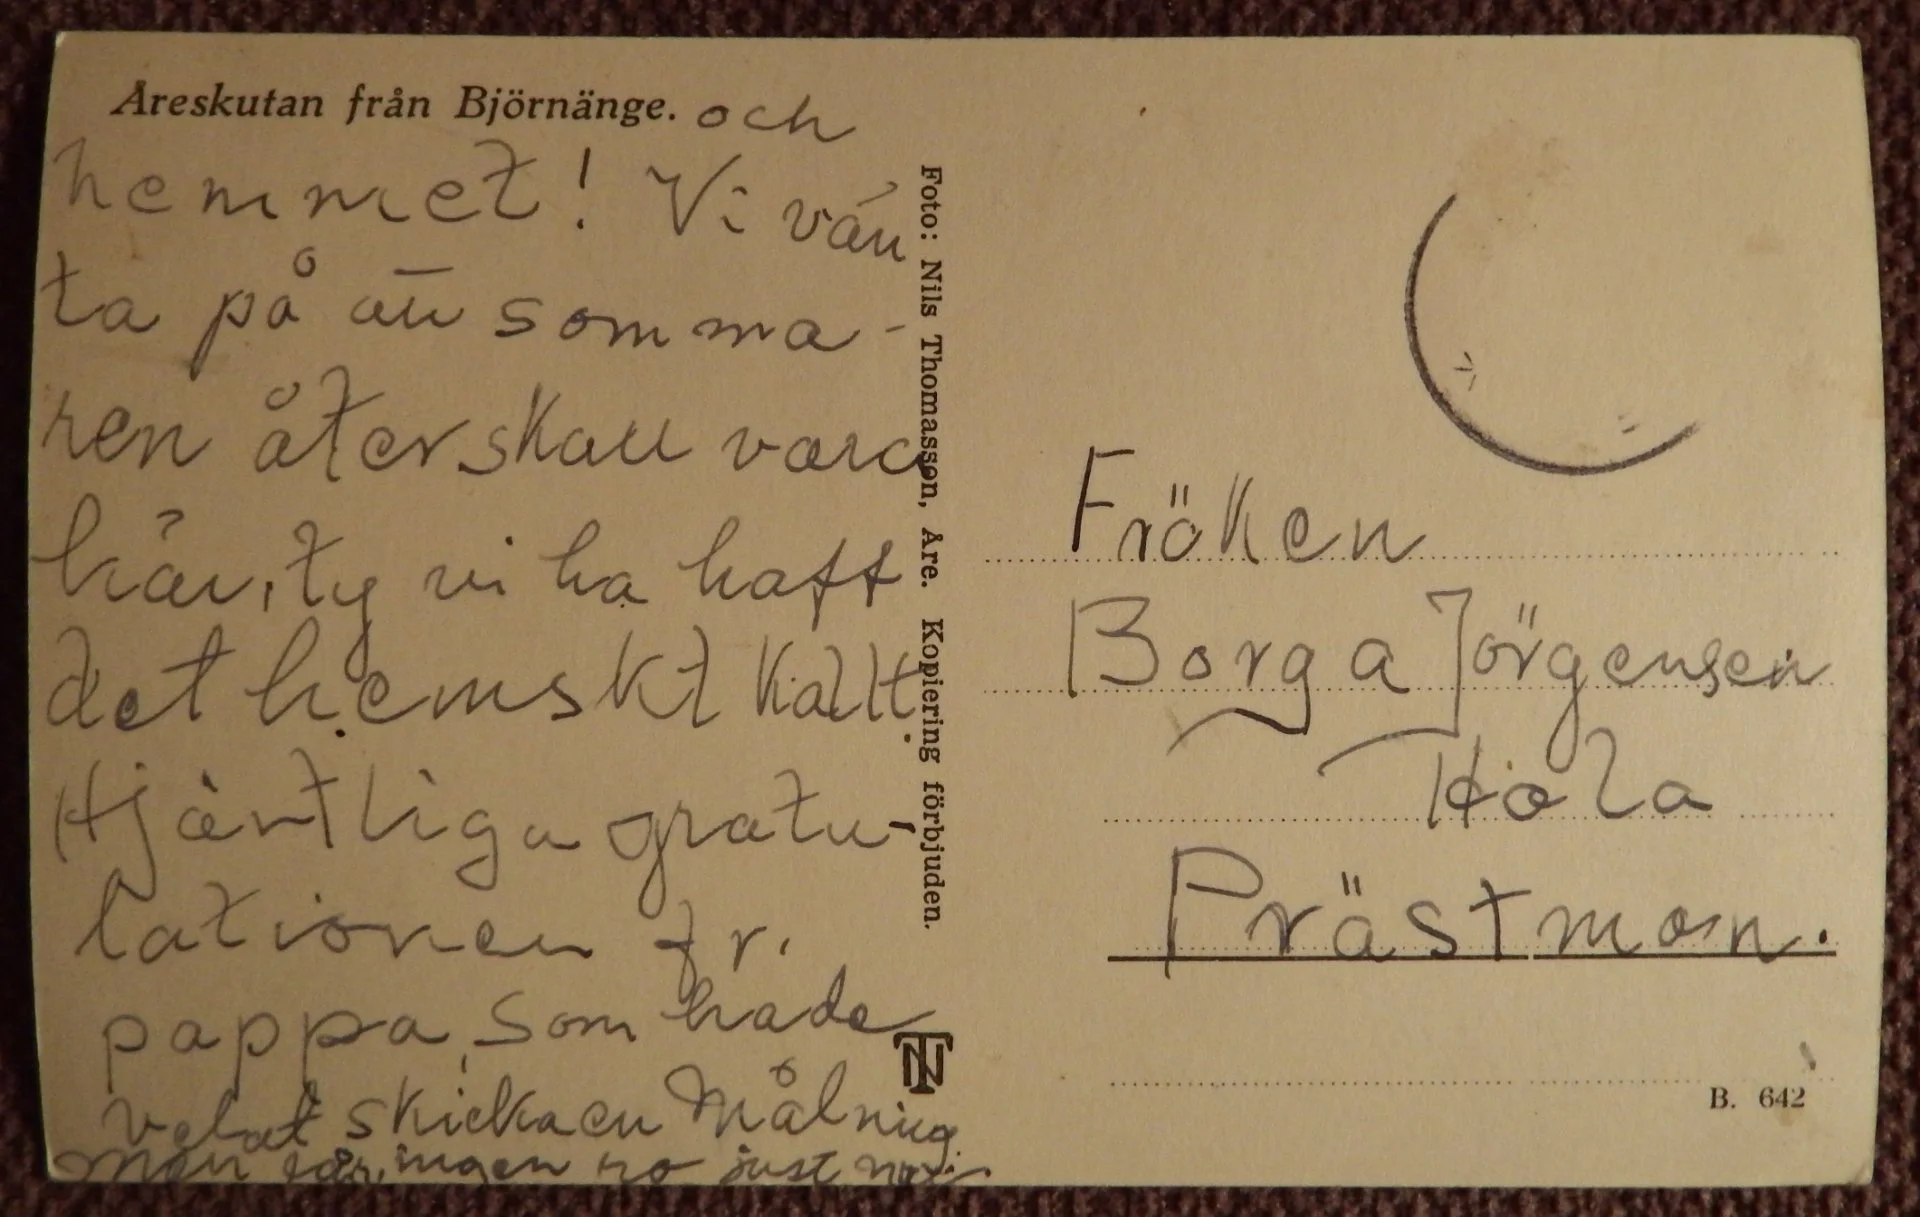 Åreskutan från Björnänge. och
hemmet! Vi vän
ta på att somma-
ren åter skall vara
här, ty vi ha haft
det hemskt kallt.
Hjärtliga gratu-
lationen fr.
pappa, som hade
velat skicka en målning
men får ingen ro just nu.
Foto: Nils Thomasson, Åre. Kopiering förbjuden.
NT
Fröken
Borga Jörgensen
Hola
Prästmon.
B. 642